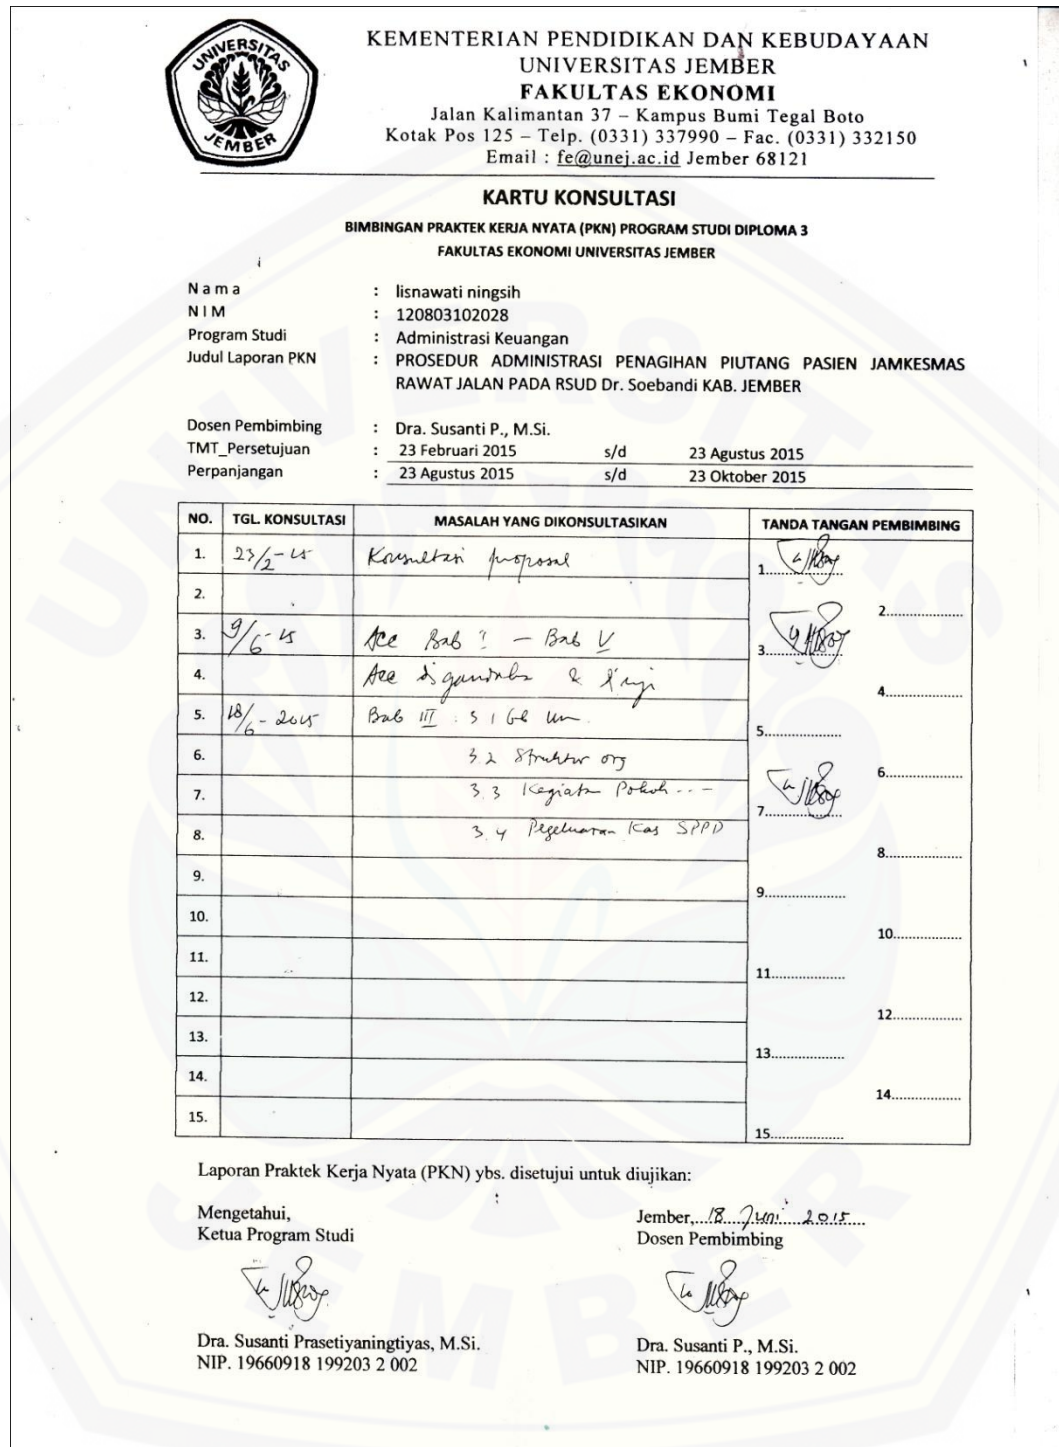 UNIVERSITAS
JEMBER
KEMENTERIAN PENDIDIKAN DAN KEBUDAYAAN
UNIVERSITAS JEMBER
FAKULTAS EKONOMI
Jalan Kalimantan 37 – Kampus Bumi Tegal Boto
Kotak Pos 125 – Telp. (0331) 337990 – Fac. (0331) 332150
Email : fe@unej.ac.id Jember 68121
KARTU KONSULTASI
BIMBINGAN PRAKTEK KERJA NYATA (PKN) PROGRAM STUDI DIPLOMA 3
FAKULTAS EKONOMI UNIVERSITAS JEMBER
N a m a : lisnawati ningsih
N I M : 120803102028
Program Studi : Administrasi Keuangan
Judul Laporan PKN : PROSEDUR ADMINISTRASI PENAGIHAN PIUTANG PASIEN JAMKESMAS
RAWAT JALAN PADA RSUD Dr. Soebandi KAB. JEMBER
Dosen Pembimbing : Dra. Susanti P., M.Si.
TMT_Persetujuan : 23 Februari 2015 s/d 23 Agustus 2015
Perpanjangan : 23 Agustus 2015 s/d 23 Oktober 2015
NO. TGL. KONSULTASI MASALAH YANG DIKONSULTASIKAN TANDA TANGAN PEMBIMBING
1. 23/2-15 Konsultasi proposal 1..................
2. 2..................
3. 9/6-15 Acc Bab I – Bab V 3..................
4. Acc digandakan & 4..................
5. 18/6-2015 Bab III : 3.1 5..................
6. 3.2 Struktur org 6..................
7. 3.3 Kegiatan Pokok ... 7..................
8. 3.4 Pegeluaran Kas SPPD 8..................
9. 9..................
10. 10..................
11. 11..................
12. 12..................
13. 13..................
14. 14..................
15. 15..................
Laporan Praktek Kerja Nyata (PKN) ybs. disetujui untuk diujikan:
Mengetahui, Jember, 18 Juni 2015
Ketua Program Studi Dosen Pembimbing
Dra. Susanti Prasetiyaningtiyas, M.Si. Dra. Susanti P., M.Si.
NIP. 19660918 199203 2 002 NIP. 19660918 199203 2 002